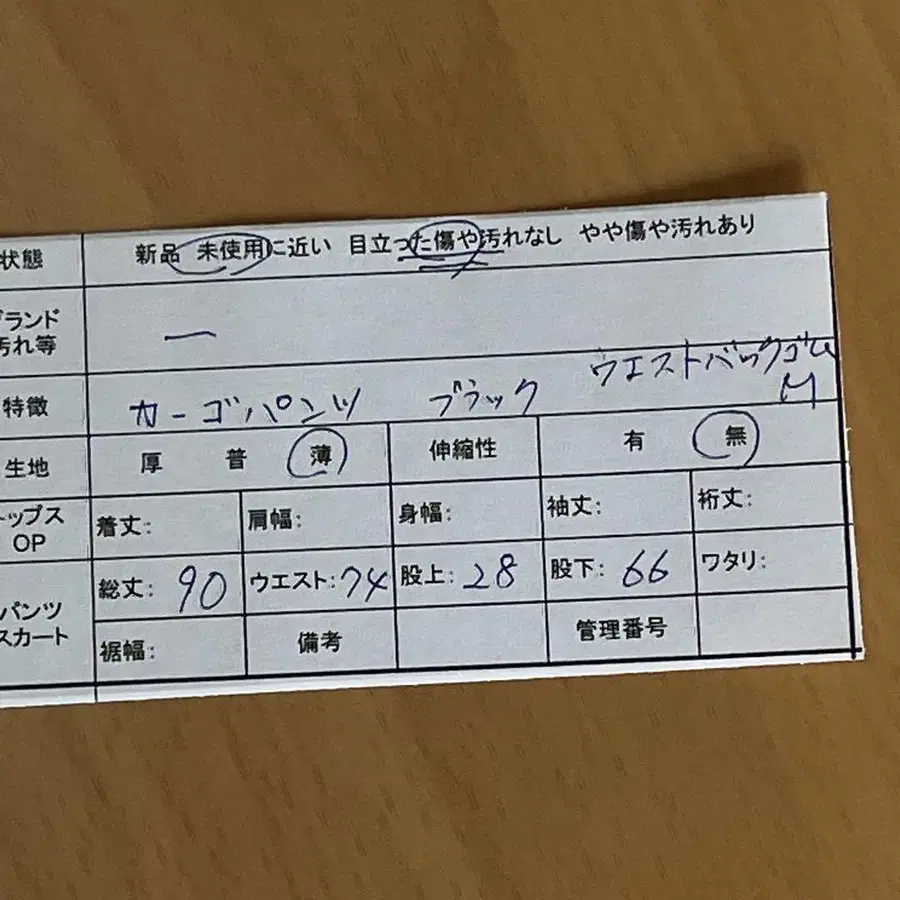 状態 新品 未使用に近い 目立った傷や汚れなし やや傷や汚れあり
ブランド
汚れ等 ー
特徴 カーゴパンツ ブラック ウエストバックゴム
M
生地 厚 普 薄 伸縮性 有 無
トップス
OP 着丈: 肩幅: 身幅: 袖丈: 裄丈:
総丈: 90 ウエスト: 74 股上: 28 股下: 66 ワタリ:
パンツ
スカート
裾幅: 備考 管理番号